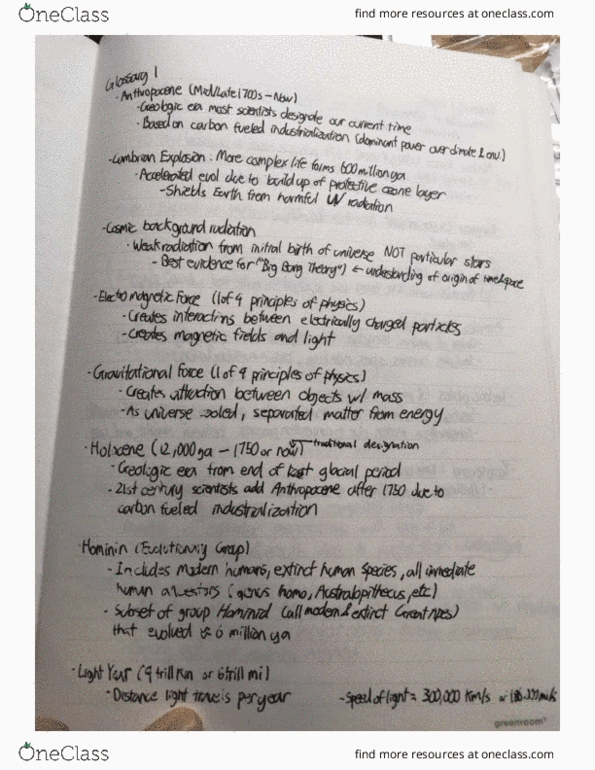 OneClass
find more resources at oneclass.com
Glossary 1
· Anthropocene (Mid/Late 1700s - Now)
- Geologic era most scientists designate our current time
· Based on carbon fueled industrialization (dominant power over climate & env.)
· Cambrian Explosion: More complex life forms 600 million ya
· Accelerated evol due to build up of protective ozone layer
- Shields Earth from harmful UV radiation
· Cosmic background radiation
· Weak radiation from initial birth of universe NOT particular stars
- Best evidence for "Big Bang Theory") ← understanding of origin of time & space
· Electromagnetic Force (1 of 4 principles of physics)
- Creates interactions between electrically charged particles
- Creates magnetic fields and light
· Gravitational Force (1 of 4 principles of physics)
- Creates attraction between objects w/ mass
- As universe cooled, separated matter from energy
· Holocene (12,000 ya - 1750 or now) traditional designation
- Geologic era from end of last glacial period
- 21st century scientists add Anthropocene after 1750 due to
carbon fueled industrialization
· Hominin (Evolutionary Group)
- Includes modern humans, extinct human species, all immediate
human ancestors (genus homo, Australopithecus, etc)
- Subset of group Hominid (all modern & extinct Great Apes)
that evolved ≈ 6 million ya
· Light Year (9 trill km or 6 trill mi)
- Distance light travels per year - Speed of light = 300,000 km/s or
greenroom
OneClass
find more resources at oneclass.com